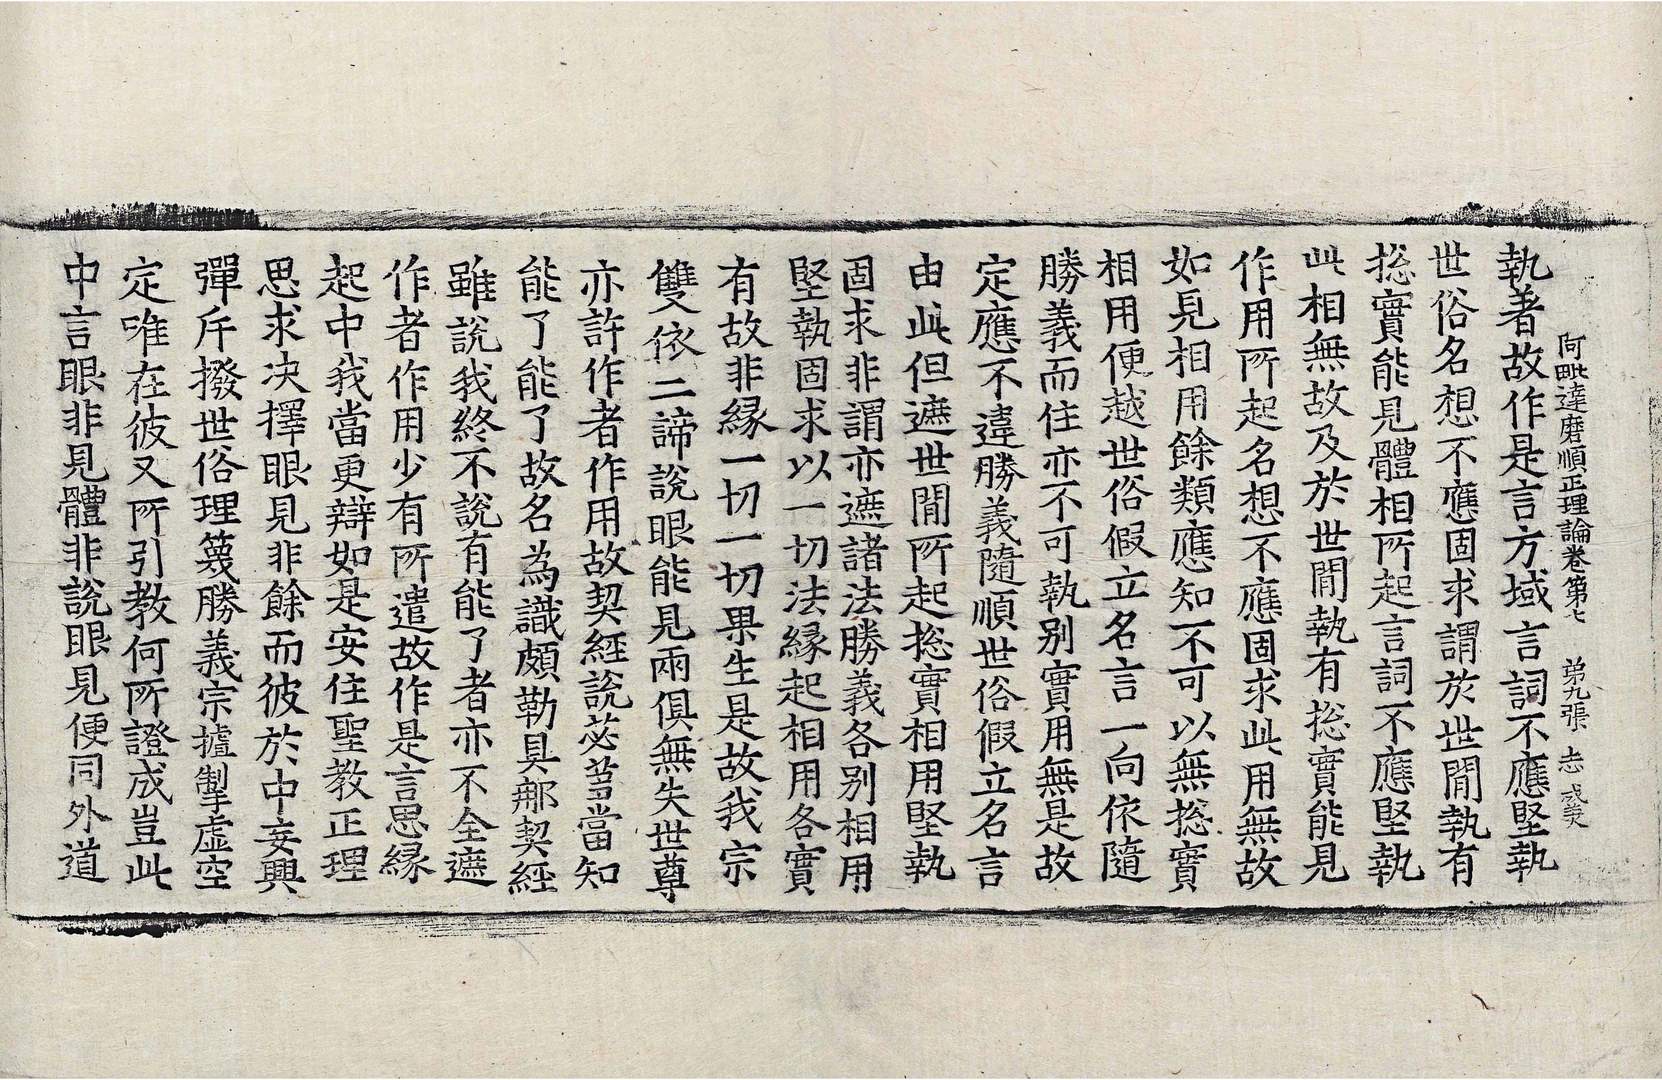 阿毗達磨順正理論卷第七 第九張 志
執著故作是言方域言詞不應堅執
世俗名想不應固求謂於世閒執有
捴實能見體相所起言詞不應堅執
此相無故及於世閒執有捴實能見
作用所起名想不應固求此用無故
如見相用餘類應知不可以無捴實
相用便越世俗假立名言一向依隨
勝義而住亦不可執別實用無是故
定應不違勝義隨順世俗假立名言
由此但遮世閒所起捴實相用堅執
固求非謂亦遮諸法勝義各別相用
堅執固求以一切法緣起相用各實
有故非緣一切一切果生是故我宗
雙依二諦說眼能見兩俱無失世尊
亦許作者作用故契經說苾芻當知
能了能了故名為識頗勒具那契經
雖說我終不說有能了者亦不全遮
作者作用少有所遣故作是言思緣
起中我當更辯如是安住聖教正理
思求決擇眼見非餘而彼於中妄興
彈斥撥世俗理篾勝義宗攎掣虛空
定唯在彼又所引教何所證成豈此
中言眼非見體非說眼見便同外道